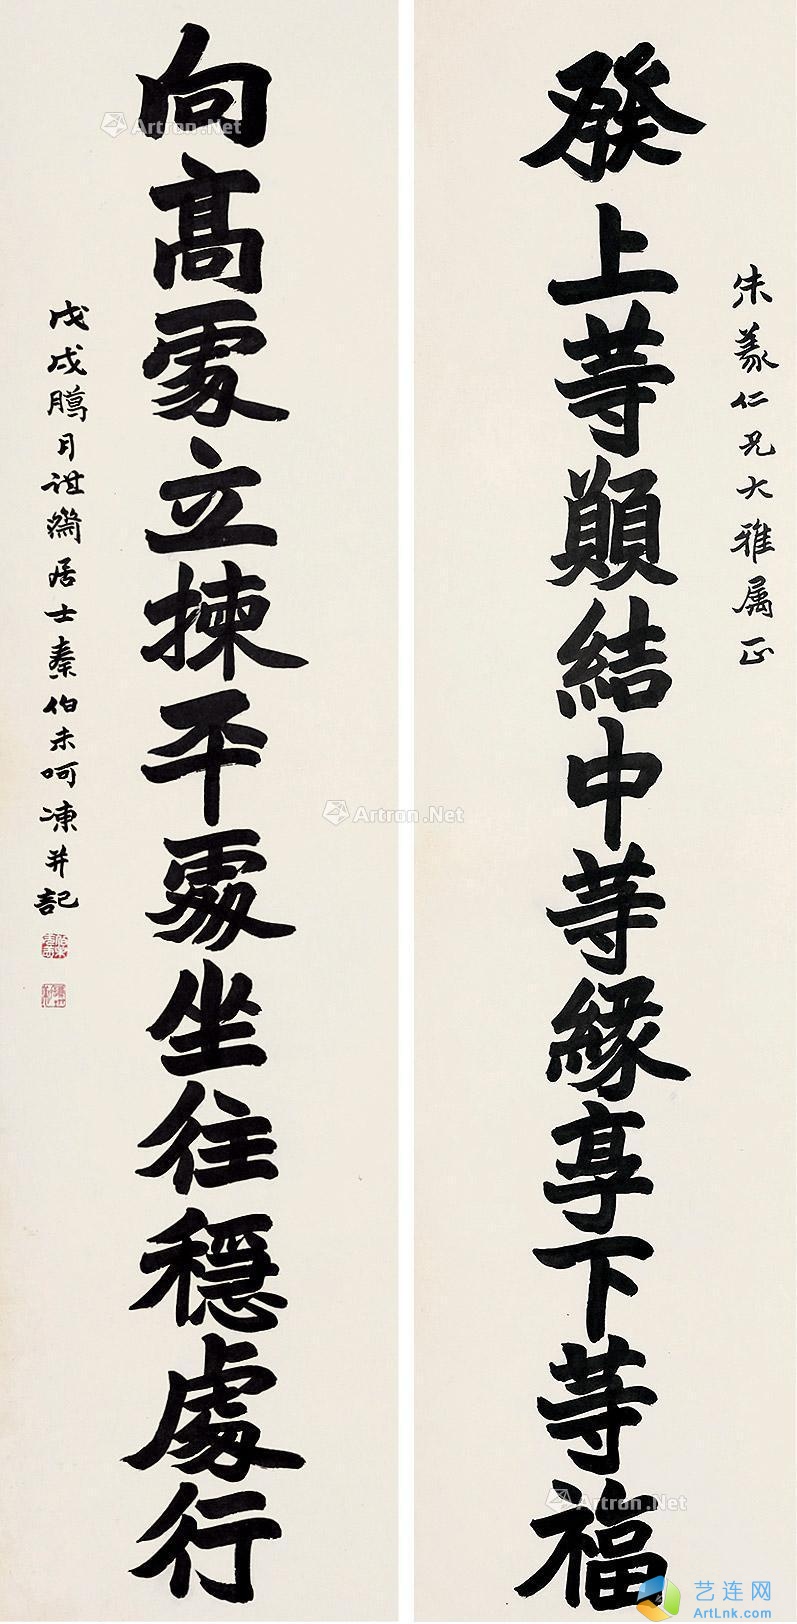 發上等願結中等緣享下等福
朱羲仁兄大雅属正
向高處立揀平處坐往穩處行
戊戌臘月謙齋居士秦伯未呵凍并記
Artron.Net
Artron.Net
Artron.Net
Artron.Net
艺连网
ArtLnk.com